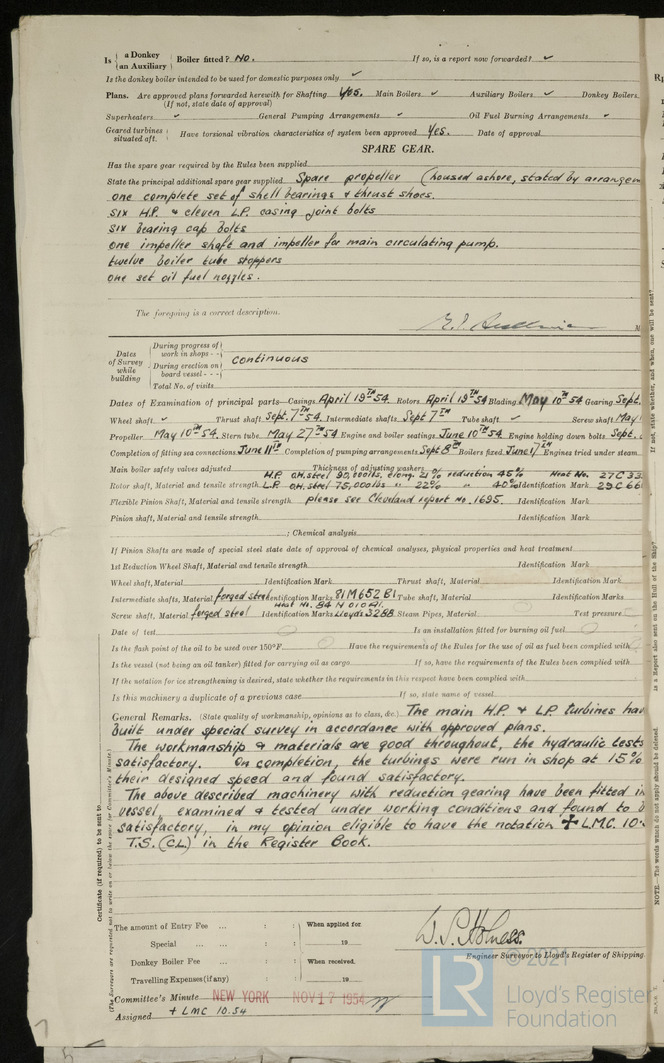 Is { a Donkey / an Auxiliary } Boiler fitted? No. If so, is a report now forwarded? ✓
Is the donkey boiler intended to be used for domestic purposes only ✓
Plans. Are approved plans forwarded herewith for Shafting Yes. Main Boilers ✓ Auxiliary Boilers ✓ Donkey Boilers
(If not, state date of approval)
Superheaters ✓ General Pumping Arrangements ✓ Oil Fuel Burning Arrangements ✓
Geared turbines situated aft. } Have torsional vibration characteristics of system been approved Yes. Date of approval
SPARE GEAR.
Has the spare gear required by the Rules been supplied
State the principal additional spare gear supplied Spare propeller (housed ashore, stated by arrangem
one complete set of shell bearings & thrust shoes.
six H.P. & eleven L.P. casing joint bolts
six bearing cap bolts
one impeller shaft and impeller for main circulating pump.
twelve boiler tube stoppers
one set oil fuel nozzles.
The foregoing is a correct description.
M
Dates of Survey while building
During progress of work in shops - -
During erection on board vessel - - -
continuous
Total No. of visits
Dates of Examination of principal parts—Casings April 19TH 54 Rotors April 19TH 54 Blading May 10TH 54 Gearing Sept.
Wheel shaft ✓ Thrust shaft Sept. 7TH 54. Intermediate shafts Sept 7TH Tube shaft ✓ Screw shaft May
Propeller May 10TH 54. Stern tube May 27TH 54 Engine and boiler seatings June 10TH 54 Engine holding down bolts Sept.
Completion of fitting sea connections June 11TH Completion of pumping arrangements Sept 8TH Boilers fixed June Engines tried under steam
Main boiler safety valves adjusted Thickness of adjusting washers
H.P. O.H. steel 90,000 lbs, elong. 21% reduction 45% Heat No. 27C33
Rotor shaft, Material and tensile strength L.P. O.H. steel 75,000 lbs " 22% " 40% Identification Mark 29C66
Flexible Pinion Shaft, Material and tensile strength please see Cleveland report No. 1695. Identification Mark
Pinion shaft, Material and tensile strength Identification Mark
: Chemical analysis
If Pinion Shafts are made of special steel state date of approval of chemical analyses, physical properties and heat treatment
1st Reduction Wheel Shaft, Material and tensile strength Identification Mark
Wheel shaft, Material Identification Mark Thrust shaft, Material Identification Mark
Intermediate shafts, Material forged steel Identification Marks 81M652B1 Tube shaft, Material Identification Mark
Heat No. 84 N 010 A1.
Screw shaft, Material forged steel Identification Marks Lloyd's 3268 Steam Pipes, Material Test pressure
Date of test Is an installation fitted for burning oil fuel
Is the flash point of the oil to be used over 150°F. Have the requirements of the Rules for the use of oil as fuel been complied with
Is the vessel (not being an oil tanker) fitted for carrying oil as cargo If so, have the requirements of the Rules been complied with
If the notation for ice strengthening is desired, state whether the requirements in this respect have been complied with
Is this machinery a duplicate of a previous case If so, state name of vessel
General Remarks. (State quality of workmanship, opinions as to class, &c.) The main H.P. & L.P. turbines hav
built under special survey in accordance with approved plans.
The workmanship & materials are good throughout, the hydraulic tests
satisfactory. On completion, the turbines were run in shop at 15%
their designed speed and found satisfactory.
The above described machinery with reduction gearing have been fitted in
vessel, examined & tested under working conditions and found to b
satisfactory, in my opinion eligible to have the notation ✠ L.M.C. 10.
T.S. (CL) in the Register Book.
Certificate (if required) to be sent to
(The Surveyors are requested not to write on or below the space for Committee's Minute.)
The amount of Entry Fee ... : : When applied for
Special ... ... : : 19
Donkey Boiler Fee ... : : When received,
Travelling Expenses (if any) : : 19
W. S. Holness.
Engineer Surveyor to Lloyd's Register of Shipping.
Committee's Minute NEW YORK NOV 17 1954
Assigned + LMC 10.54
© 2021
LR
Lloyd's Register
Foundation
If not, state whether, and when, one will be sent?
is a Report also sent on the Hull of the Ship?
NOTE.—The words which do not apply should be deleted.